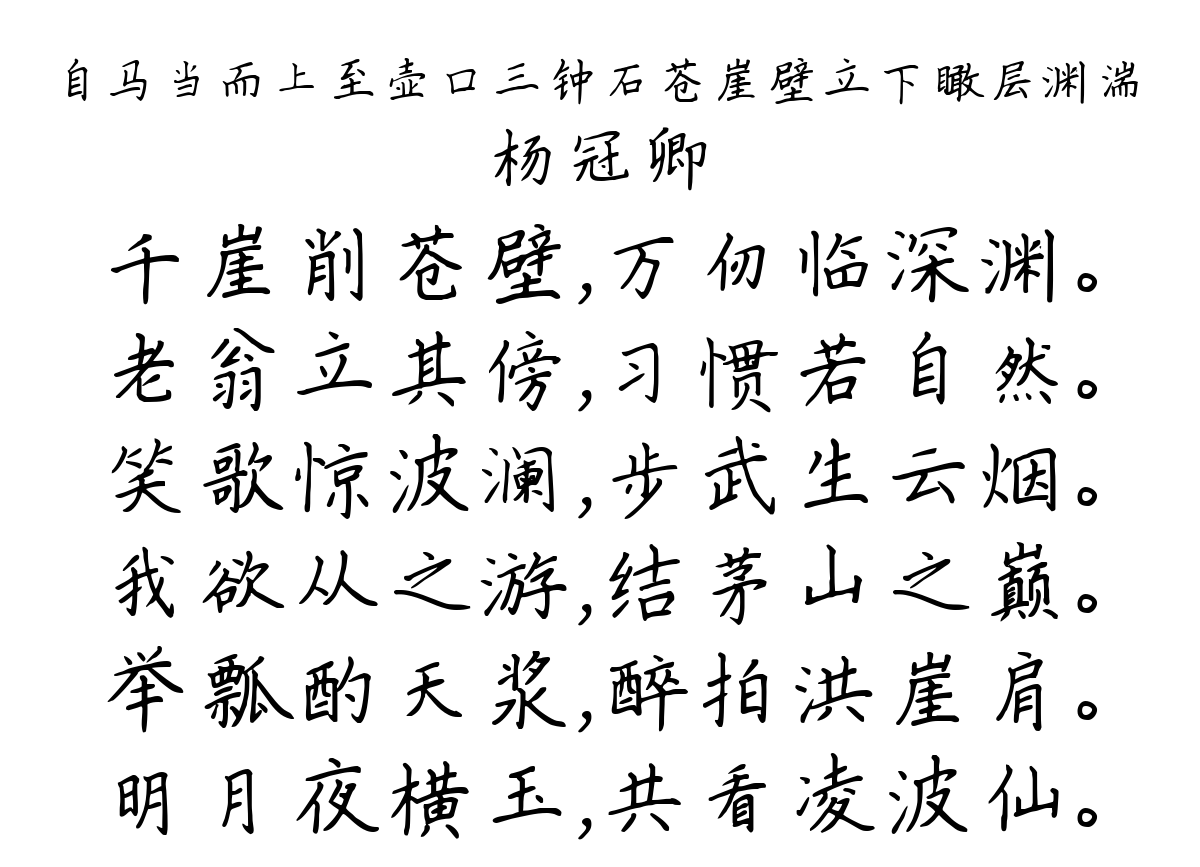 自马当而上至壶口三钟石苍崖壁立下瞰层渊湍
杨冠卿
千崖削苍壁,万仞临深渊。
老翁立其傍,习惯若自然。
笑歌惊波澜,步武生云烟。
我欲从之游,结茅山之巅。
举瓢酌天浆,醉拍洪崖肩。
明月夜横玉,共看凌波仙。